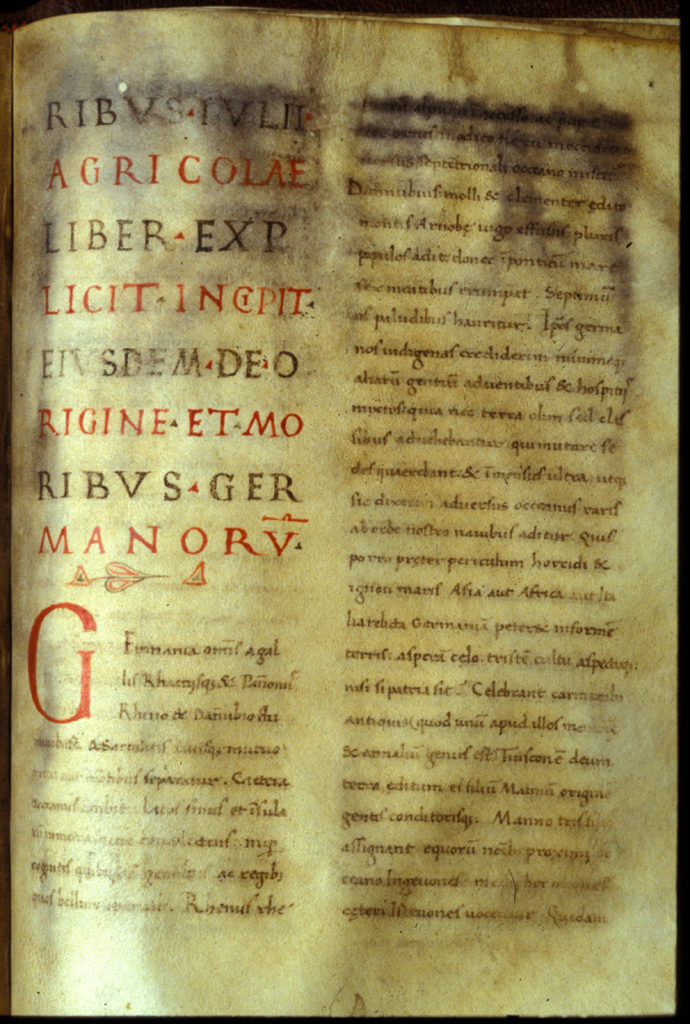 RIBVS·IVLII·
AGRICOLAE
LIBER·EXP
LICIT·INCIPIT·
EIVSDEM·DE·O
RIGINE·ET·MO
RIBVS·GER
MANORV̄·
Germania om̄is a gal
lis Rhaetiisq; & Pannoniis
Rheno & Danubio flu
minibus a Sarmatis Dacisq; mutuo
metu aut montibus separatur. Caetera
oceanus ambit Latos sinus et īsula
rum complectens nup
cognitis gentibus ac regib;
quos bellum aperuit. Rhenus rhe
vertice ac prae
modico flexu in occidentem
versus septētrionali oceano miscet
Danubius molli & clementer edito
montis Arnobę iugo effusus pluris
populos adit donec ī ponticū mare
sex meatibus erumpat. Septimū
os paludibus hauritur. Ip̄os germa
nos indigenas crediderim minimeq;
aliarū gentiū adventibus & hospitiis
mixtos: quia nec terra olim sed clas
sibus advehebantur qui mutare se
des quaerebant & īmensus ultra utq;
sic dixerim adversus occeanus raris
ab orbe nostro navibus aditur. Quis
porro preter periculum horridi &
ignoti maris Asia aut Africa aut Ita
lia relicta Germaniā peteret informē
terris: asperā cęlo: tristē cultu aspectuq;:
nisi si patria sit. Celebrant carminib;
antiquis (quod unū apud illos memorię
& annaliū genus est) Tuisconē deum
terra editum ei filiū Mannū originē
gentis conditorisq;. Manno tris
assignant equorū nōib; proximi o
ceano Ingevones medii hermiones
cęteri Istevones vocentur. Quidam